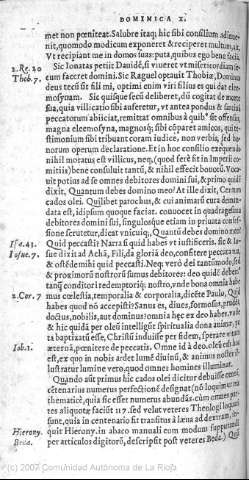 DOMINICA X.
met non pœniteat. Salubre itaq; hic sibi consilium adinue-
nit, quomodo modicum exponeret & reciperet multum, &c.
Vt recipiant me in domos suas: puta, quibus ego bene facio.
2. Re. 20
Sic Ionatas petiit Dauid, si viueret vt misericordiam se-
Thob. 7.
cum faceret domini. Sic Raguel optauit Thobiæ, Domini
deus tecũ sit fili mi, optimi enim viri filius es qui dat elee-
mosynam. Sic quisque sese deliberet, dũ cogitat de morte
sua, quia villicatio sibi aufertur, vt antea pondus & sarcinã
peccatorum abiiciat, remittat omnibus à quib. offensus,
magna eleemosyna, magnosq; sibi cõparet amicos,
stimonium sibi tribuant coram iudice, non verbis, sed bo-
norum operum declaratione. Et in hoc consilio
nihil motus est villicus, neq, (quod ferè fit in Imperio com-
mitiis) bene consuluit tancũ, & nihil effecit
cat potius ad se omnes debitores domini sui, & primo quidẽ
dixit, Quantum debes domino meo? At ille dixit, Centum
cados olei. Quilibet parochus, & cui animarũ cura deman-
data est, id ipsum quoque faciat. conuocet in quadragesima
debitores domini sui, singulosque etiam in priuata confes-
sione scrutetur, dicat vnicuiq, Quantũ debes domino meo?
Isa. 43.
Quid peccasti? Narra si quid habes vt iustificeris. sic & Io-
Iosue. 7.
sue dixit ad Achã, Fili, da gloriã deo, confitere peccatum,
& ostẽde mihi quid peccasti. Neq; verò dei tantũmodo,
& proximorũ nostrorũ sumus debitores: deo quidẽ
tanq̃ conditori redemptoriq; nostro, vnde bona omnia
2. Cor. 7
mus cœlestia, temporalia & corporalia, dicẽte Paulo, Quid
habes quod nõ accepisti? Sanus es, diues, formosus,
doctus, nobilis, aut dominus? omnia hęc ex deo habes.
& hic quidẽ per oleũ intelligit spiritualia dona animi,
ta baptizatũ esse, Christũ induisse per fidem, sperare
Iob. 1.
æternã, pœnitere de peccatis. Omne id à deo olei
est, ex quo in nobis ardet lumẽ diuinũ, & animus noster
lustratur lumine vero, quod omnes homines illuminat.
Quando aũt primus hic cados olei dicitur debuisse
cẽtenarius numerus perfectionẽ designat (nõ loquimur
thematicè, quia sic esset numerus abundãs, cùm omnes par-
tes aliquotæ faciũt 117. sed velut veteres Theologi
sunt, quia in centenario fit transitus à læua ad
Hierony.
quit Hierony. in abaco manuali eum modum supputandi
Beda.
per articulos digitorũ, descripsit post veteres Beda.)
(c) 2007 Comunidad Autónoma de La Rioja